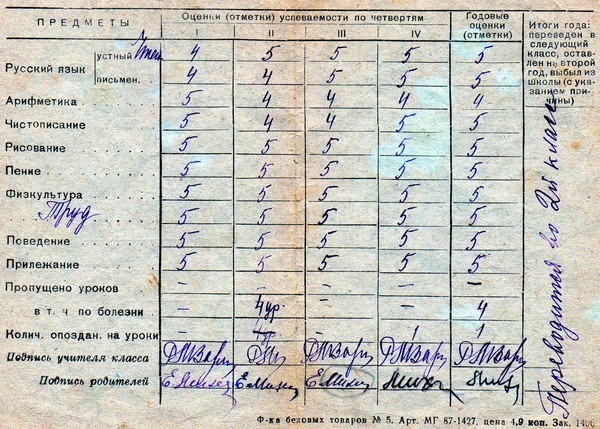 ПРЕДМЕТЫ
Оценки (отметки) успеваемости по четвертям
Годовые оценки (отметки)
I II III IV
Итоги года: переведен в следующий класс, оставлен на второй год, выбыл из школы (с указанием причины)
Русский язык
устный Чтен 4 5 5 5 5
письмен. 4 4 5 5 5
Арифметика 5 4 4 4 4
Чистописание 5 4 4 5 5
Рисование 5 5 5 5 5
Пение 5 5 5 5 5
Физкультура 5 5 5 5 5
Труд 5 5 5 5 5
Поведение 5 5 5 5 5
Прилежание 5 5 5 5 5
Пропущено уроков – – – –
в т. ч. по болезни – 4 ур. – – 4
Колич. опоздан. на уроки – – 1 1
Подпись учителя класса
Подпись родителей
Переводится во 2й класс
Ф-ка беловых товаров № 5. Арт. МГ 87-1427, цена 4,9 коп. Зак. 1400